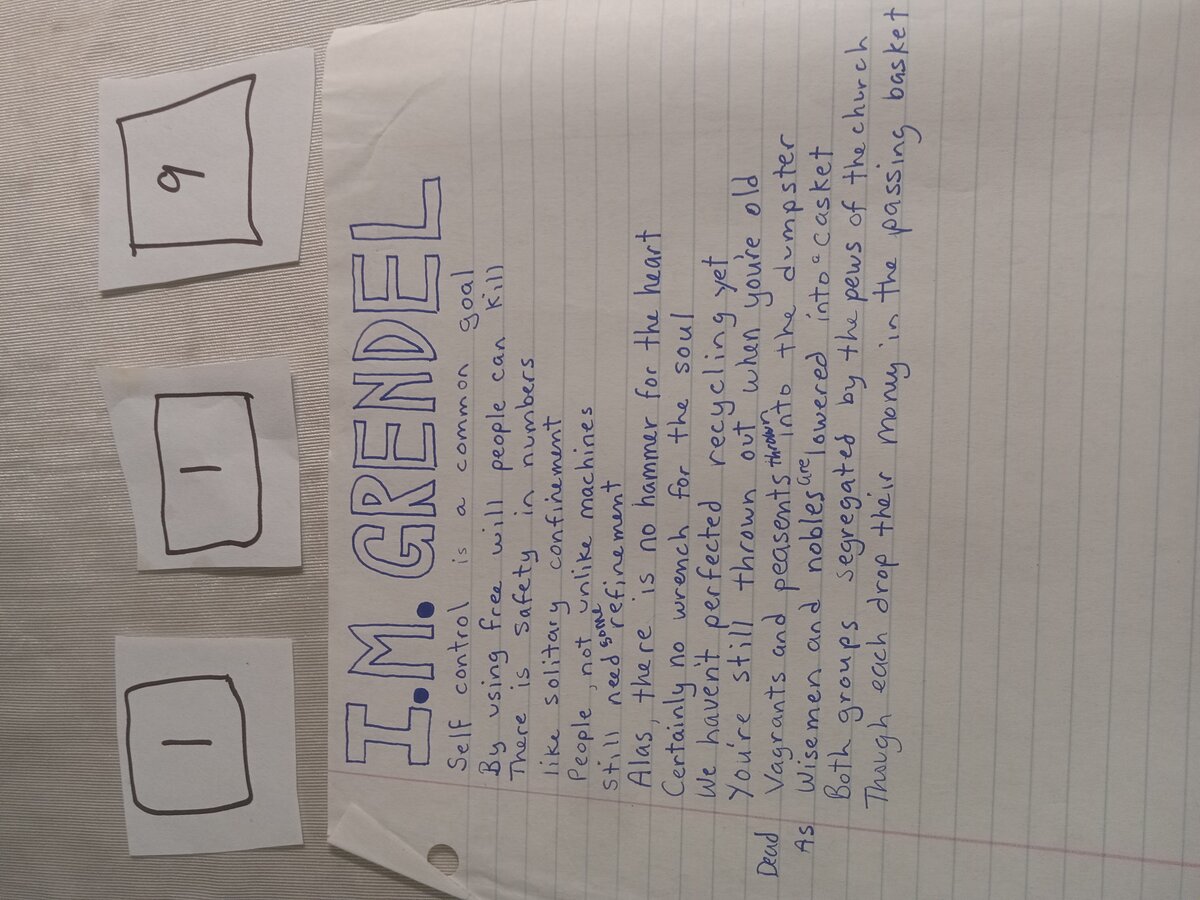 1 1 9
I.M. GRENDEL
Self control is a common goal
By using free will people can kill
There is safety in numbers
like solitary confinement
People, not unlike machines
still need some refinement
Alas, there is no hammer for the heart
Certainly no wrench for the soul
We haven't perfected recycling yet
You're still thrown out when you're old
Dead Vagrants and peasents thrown into the dumpster
As Wisemen and nobles are lowered into a casket
Both groups segregated by the pews of the church
Though each drop their money in the passing basket